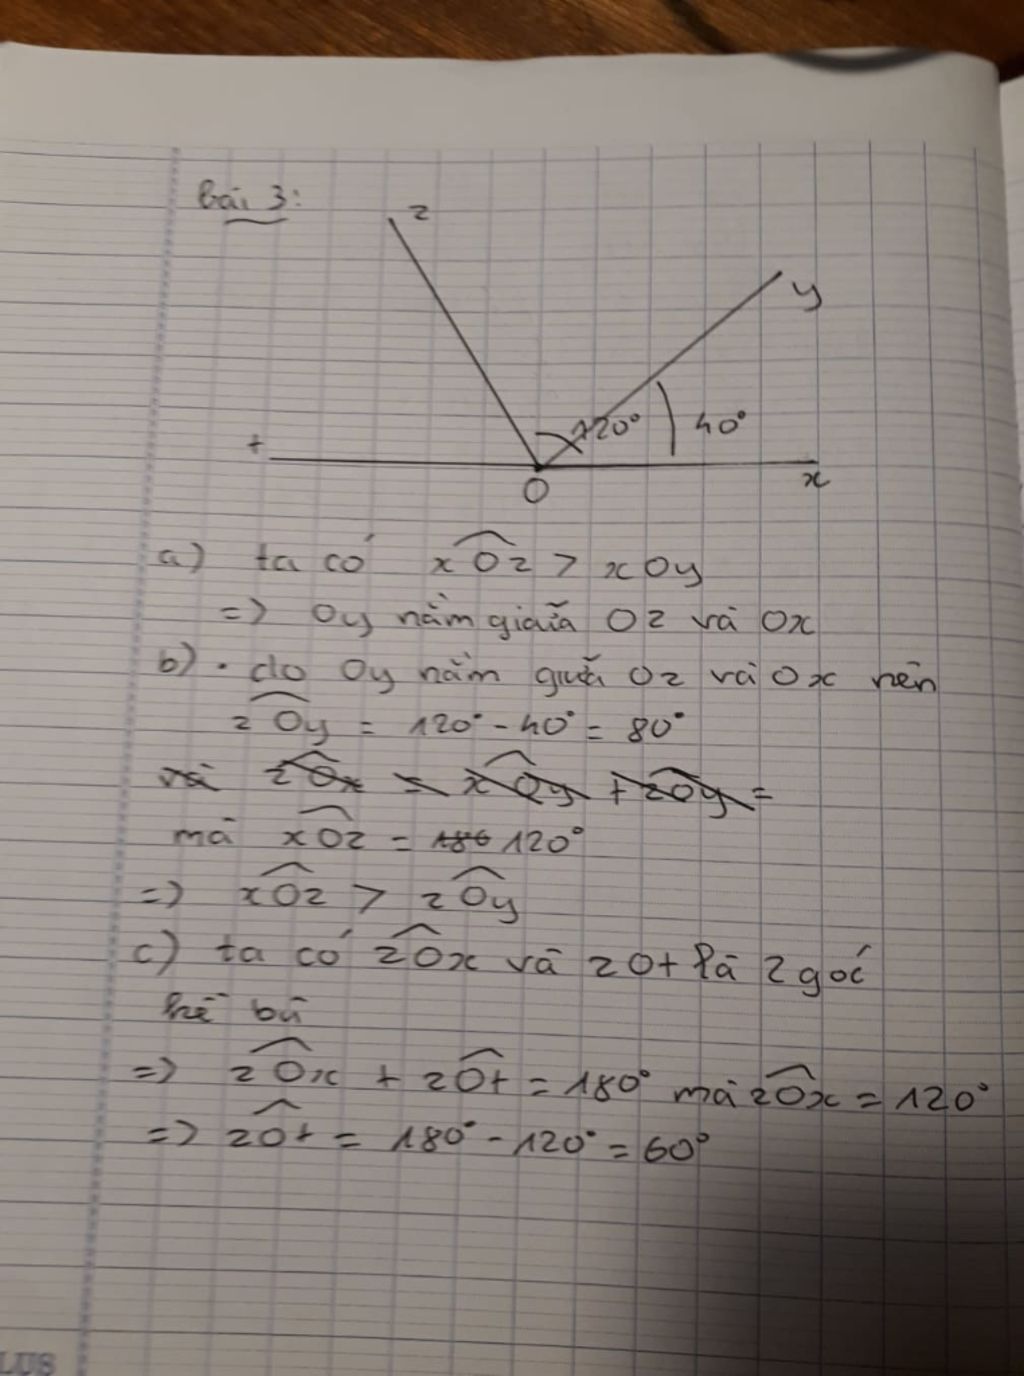 Bài 3:
z
y
120° 40°
t
x
O
a) ta có xOz > xOy
=> Oy nằm giữa Oz và Ox
b) . do Oy nằm giữa Oz và Ox nên
zOy = 120° - 40° = 80°
và zOx = xOy + zOy =
mà xOz = 180 120°
=> xOz > zOy
c) ta có zOx và zOt là 2 góc
kề bù
=> zOx + zOt = 180° mà zOx = 120°
=> zOt = 180° - 120° = 60°
LUS